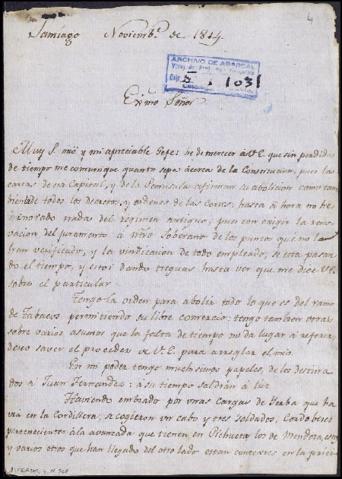 4
Santiago Noviemb.e de 1814.
ARCHIVO DE ABASCAL
1031
Exmo Señor
Muy S. mio y mi apreciable Gefe: he de merecer à V.E. que sin perdida
de tiempo me comunique quanto sepa acerca de la Constitucion, pues las
cartas de esa Capital, y de la Peninsula confirman su abolicion, como tam
bien de todos los decretos, y ordenes de las Cortes, hasta ahora no he
innovado nada del regimen antiguo, pues con exigir la reno
vacion del juramento à nŕo Soberano de los puntos que no lo
han verificado, y la vindicacion de todo empleado, se esta pasan
do el tiempo, y estoi dando treguas hasta ver que me dice V.E.
sobre el particular.
Tengo la orden para abolir todo lo que es del ramo
de Tabacos permitiendo su libre comercio: tengo tambien otras
sobre varios asuntos que la falta de tiempo no da lugar à referir,
deseo saver el proceder de V.E. para arreglar el mio.
En mi poder tengo muchisimos papeles, de los destina
dos à Juan Fernandez: à su tiempo saldrán à luz.
Haviendo embiado por unas cargas de Yerba que ha
via en la Cordillera, cogieron un cabo y tres soldados, Cordobeses
pertenecientes à la avanzada que tienen en Pichueta los de Mendoza, estos
y varios otros que han llegado del otro lado estan contextes en la